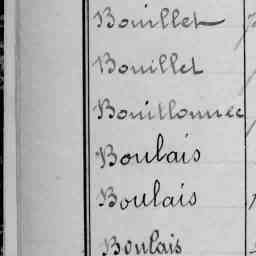 Bouillet
Bouillet
Bouillonnec
Boulais
Boulais
Boulais